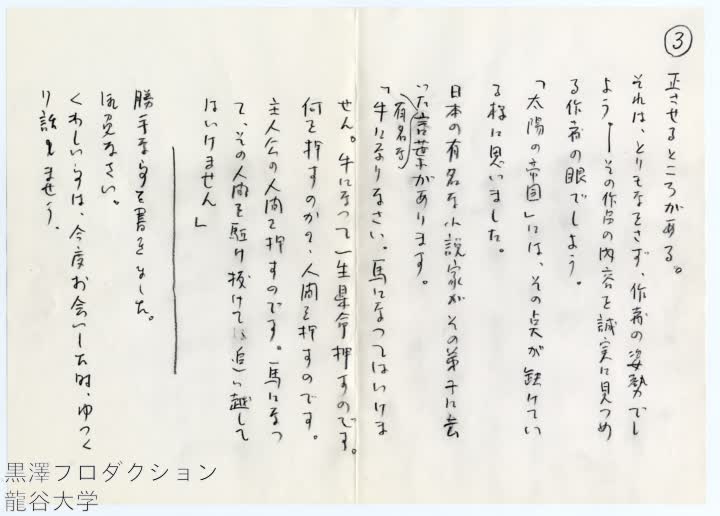 ③
正させるところがある。
それは、とりもなおさず、作者の姿勢でし
よう。―その作品の内容を誠実に見つめ
る作者の眼でしよう。
「太陽の帝国」には、その点が缺けてい
る様に思いました。
日本の有名な小説家がその弟子に云
つた有名な言葉があります。
「牛になりなさい。馬になつてはいけま
せん。牛になつて一生懸命押すのです。
何を押すのか?、人間を押すのです。
主人公の人間を押すのです。馬になつ
て、その人間を駈け抜けて追い越して
はいけません」
勝手な事を書きました。
御免なさい。
くわしい事は、今度お会いした時、ゆつく
り話しませう。
黒澤プロダクション
龍谷大学